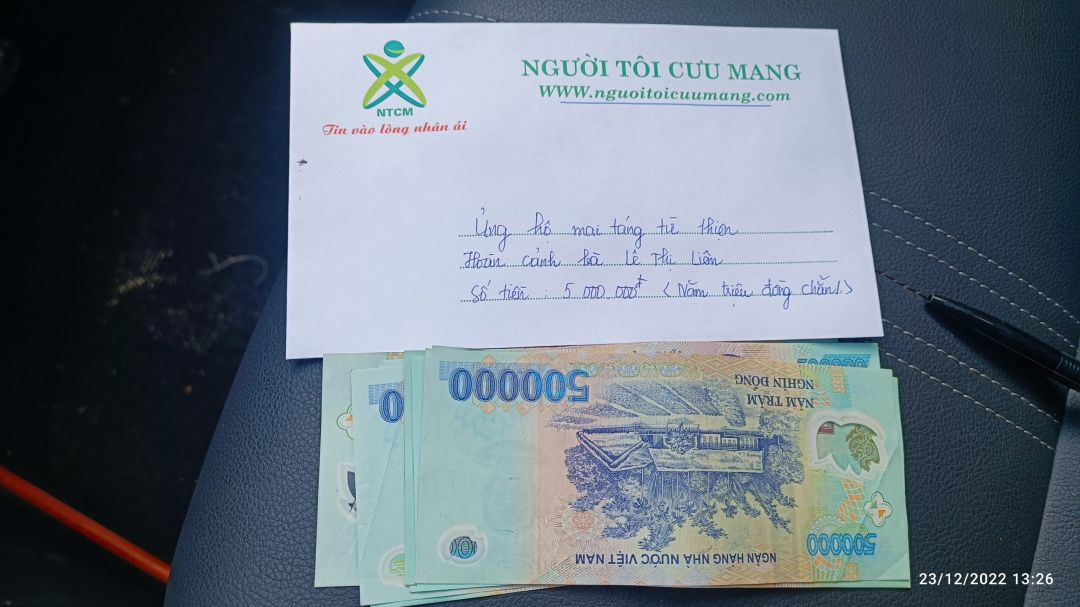 NGƯỜI TÔI CƯU MANG
WWW.nguoitoicuumang.com
NTCM
Tin vào lòng nhân ái
Ủng hộ mai táng từ thiện
Hoàn cảnh bà Lê Thị Liêm
Số tiền : 5.000.000đ <Năm triệu đồng chẵn/.>
500000
NĂM TRĂM
NGHÌN ĐỒNG
NGÂN HÀNG NHÀ NƯỚC VIỆT NAM
500000
23/12/2022 13:26